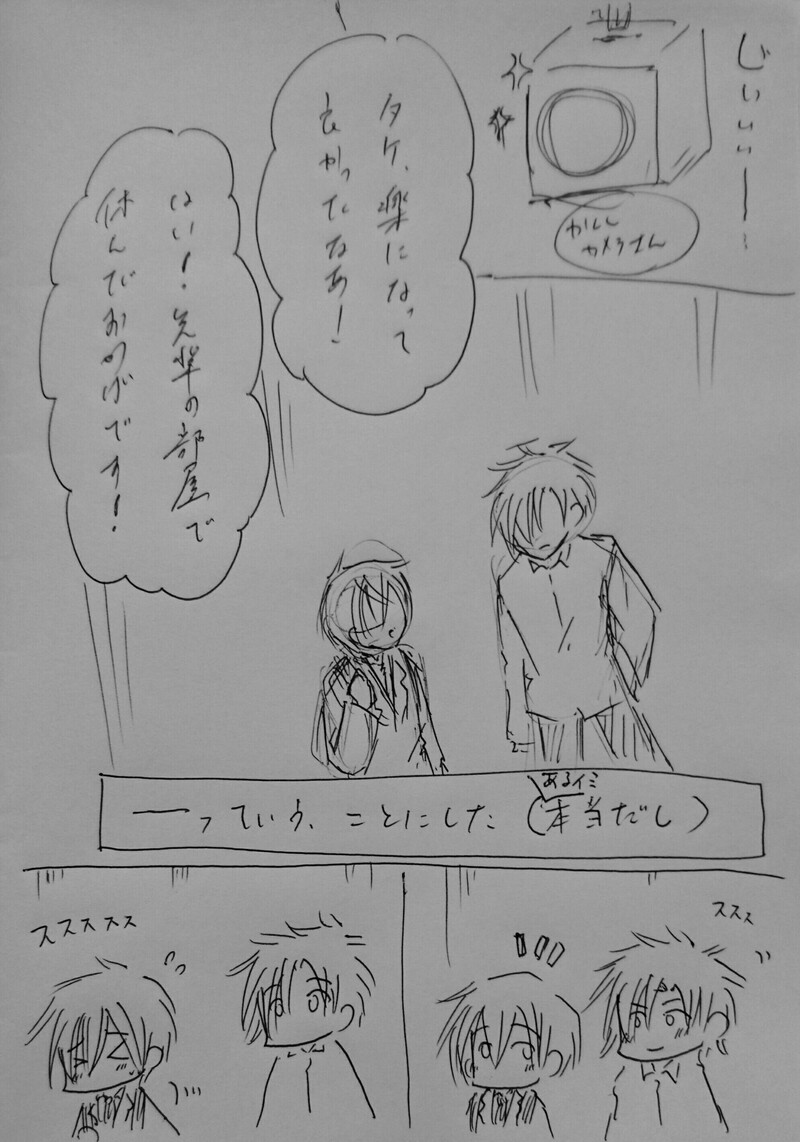 じぃぃぃー
かんし
カメラさん
タケ、楽になって
良かったなあ!
はい!先輩の部屋で
休んだおかげです!
ーっていう、ことにした(本当だし)
あるイミ
スススススス
ススス